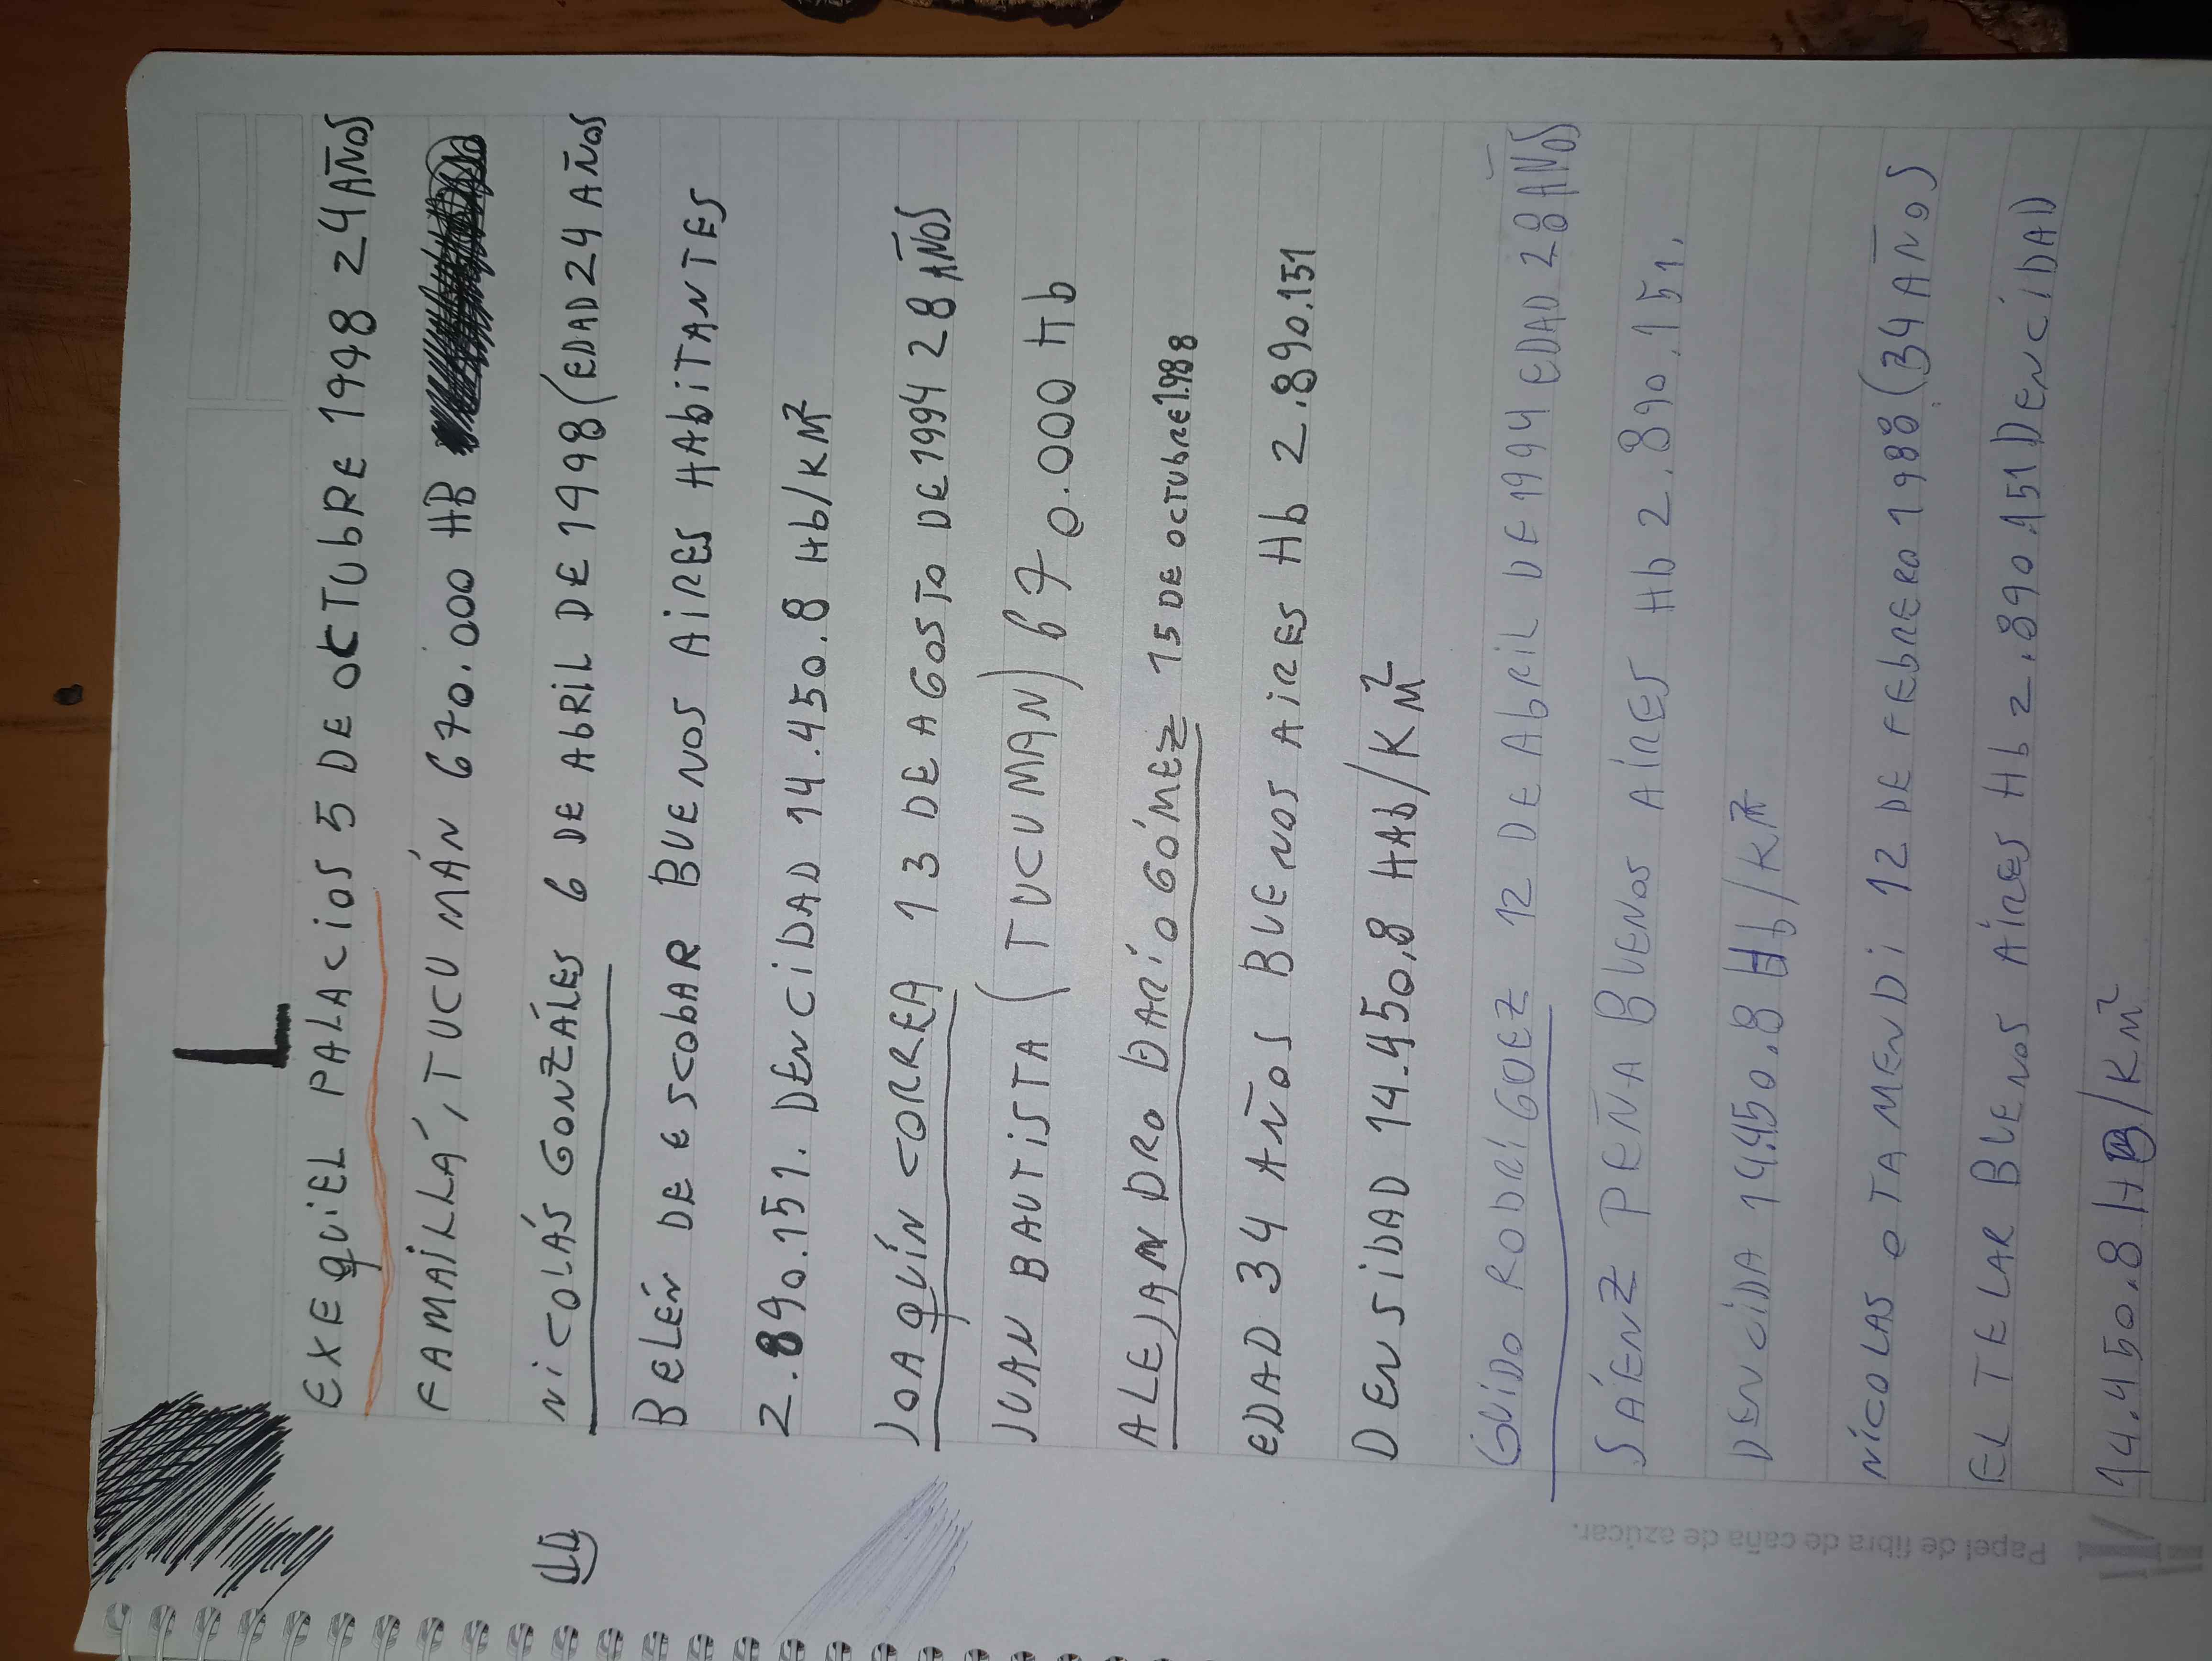 EXEQUIEL PALACIOS 5 DE OCTUBRE 1998 24 AÑOS
FAMAILLÁ, TUCUMÁN 670.000 HB
NICOLÁS GONZÁLES 6 DE ABRIL DE 1998 (EDAD 24 AÑOS
BELÉN DE ESCOBAR BUENOS AIRES HABITANTES
2.890.151. DENCIDAD 14.450.8 Hb/KM²
JOAQUÍN CORREA 13 DE AGOSTO DE 1994 28 AÑOS
JUAN BAUTISTA (TUCUMAN) 670.000 Hb
ALEJANDRO DARÍO GÓMEZ 15 DE OCTUBRE 1.988
EDAD 34 AÑOS BUENOS AIRES Hb 2.890.151
DENSIDAD 14.450,8 HAb/KM²
GUIDO RODRÍGUEZ 12 DE ABRIL DE 1994 EDAD 28 AÑOS
SÁENZ PEÑA BUENOS AÍRES Hb 2.890.151.
DENCIDA 14.450.8 Hb/KM²
NÍCOLAS OTAMENDI 12 DE FEBRERO 1988 (34 AÑOS
EL TELAR BUENOS AÍRES Hb 2.890.151 DENCÍDAD
14.450.8 HB/KM²
Papel de fibra de caña de azúcar.